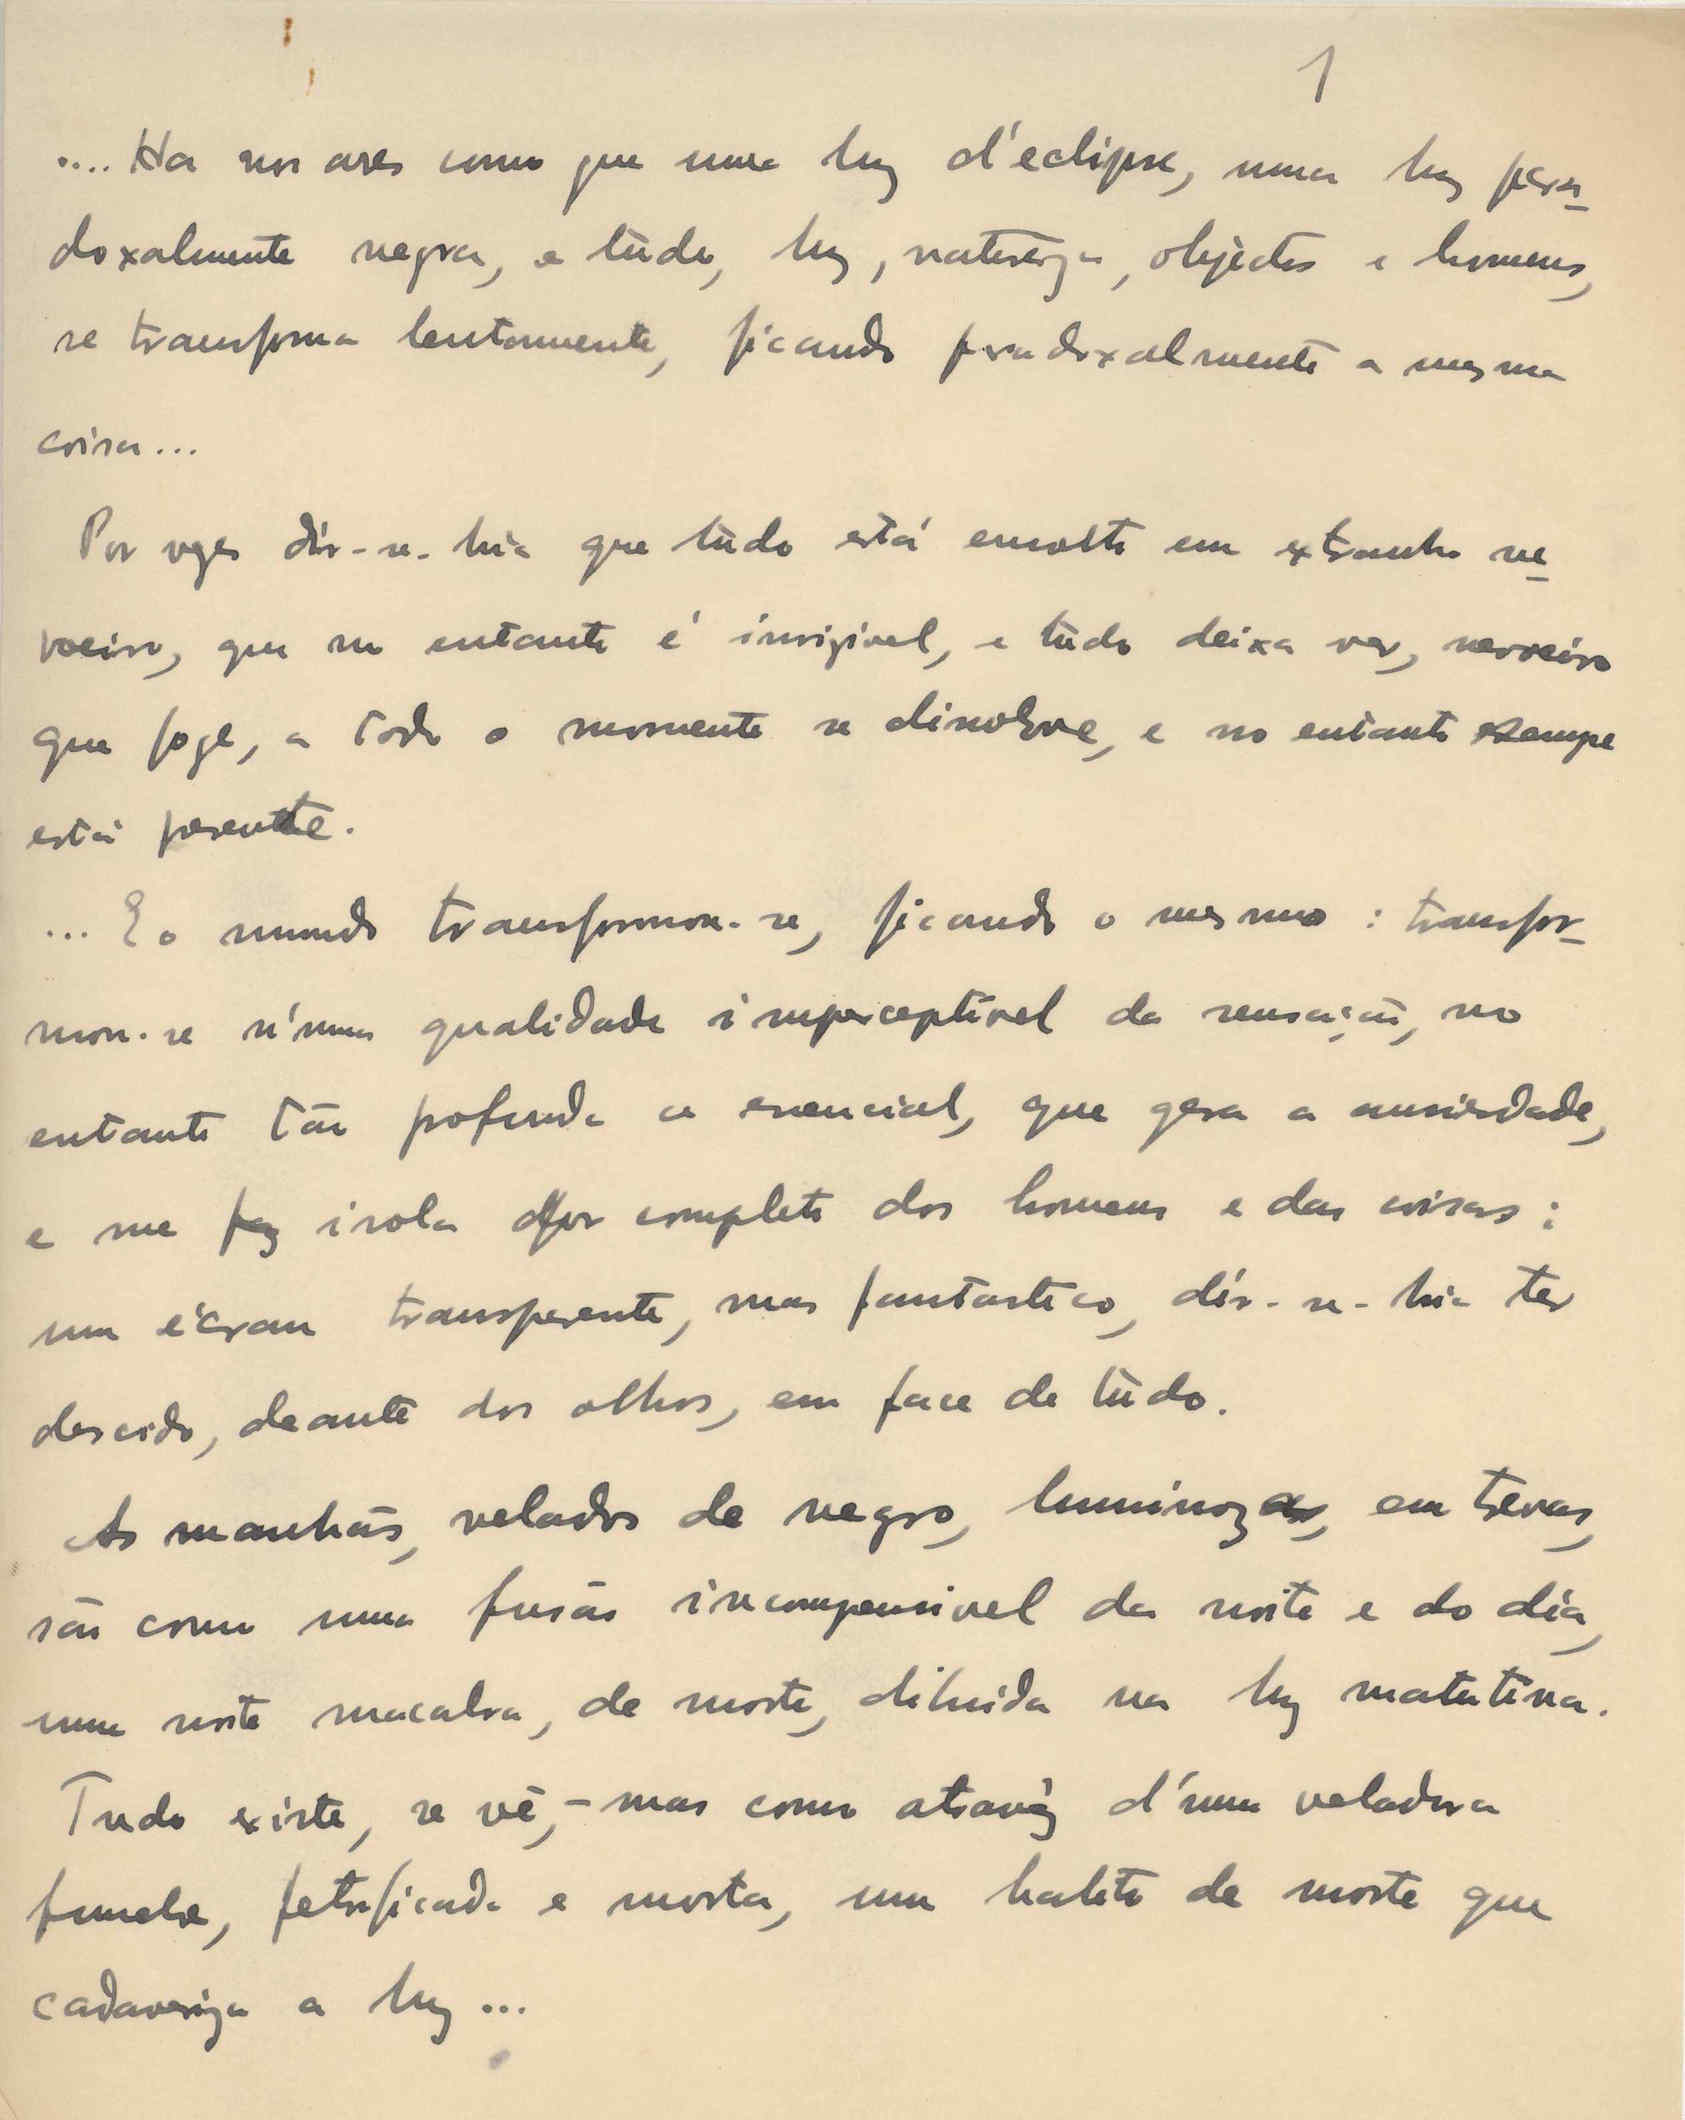 1
.... Ha nos ares como que uma luz d'eclipse, uma luz para-
doxalmente negra, e tùdo, luz, natureza, objèctos e homens,
se transforma lentamente, ficando paradoxalmente a mesma
coisa...
Por vezes dir-se-hia que tùdo está envolto em extranho ne-
voeiro, que no entanto é invizivel, e tùdo deixa ver, nevoeiro
que foge, a todo o momento se dissolve, e no entanto sempre
está presente.
... E o mundo transformou-se, ficando o mesmo: transfor-
mou-se n'uma qualidade imperceptivel da sensação, no
entanto tão profunda e essencial, que gera a ansiedade,
e me faz isola por completo dos homens e das coisas:
um écran transparente, mas fantastico, dir-se-hia ter
descido, deante dos olhos, em face de tùdo.
As manhãs, velados de negro, luminozas, em trevas,
são como uma fusão incompensivel da noite e do dia,
uma noite macabra, de morte, diluida na luz matutina.
Tudo existe, se vê, - mas como atravéz d'uma veladura
funebre, petrificada e morta, um halito de morte que
cadaveriza a luz...